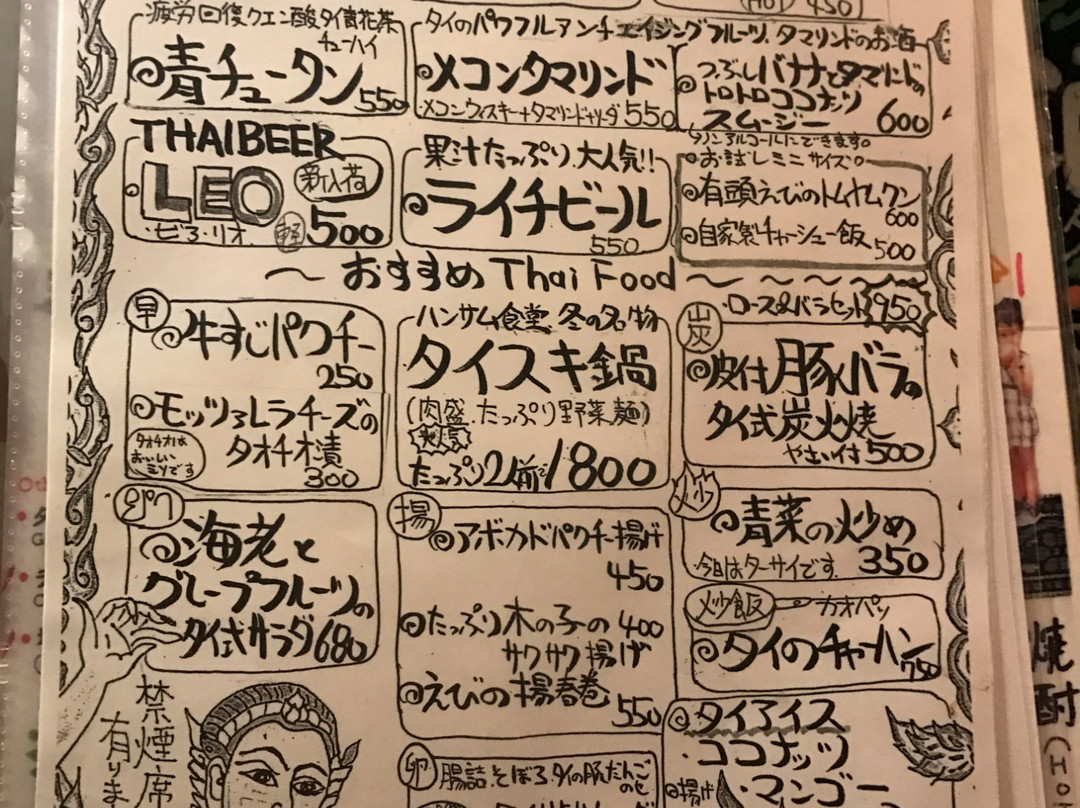 (HOT 450)
疲労回復クエン酸タイ黄花茶
チューハイ
青チュータン
550
タイのパワフルアンチエイジングフルーツ、タマリンドのお酒
メコンタマリンド
メコンウィスキー+タマリンド+ソーダ 550
つぶしバナナとタマリンドの
トロトロココナッツ
スムージー 600
ノンアルコールにできます。
THAI BEER
LEO
新入荷
・ビア・リオ
軽 500
果汁たっぷり、大人気!!
ライチビール
550
お試しミニサイズ
有頭えびのトムヤムクン
600
自家製チャーシュー飯
500
〜おすすめ Thai Food〜〜〜〜〜
早
牛すじパクチー
250
モッツァレラチーズの
タオチオ漬
300
タオチオは
おいしい
ミソです
ハンサム食堂、冬の名物
タイスキ鍋
(肉盛、たっぷり野菜、麺)
たっぷり2人前で1800
・ロース&バラセット 950
炭
皮付豚バラの
タイ式炭火焼
やさい付 500
海老と
グレープフルーツの
タイ式サラダ 680
揚
アボカドパクチー揚げ
450
たっぷり木の子の 400
サクサク揚げ
えびの揚春巻
550
炒
青菜の炒め
今日はターサイです。 350
炒飯
カオパッ
タイのチャーハン
750
禁煙席
有りま
卵
腸詰・そぼろ・タイの豚だんご
タイアイス
・ココナッツ
・マンゴー
揚げ
焼酎(Ho